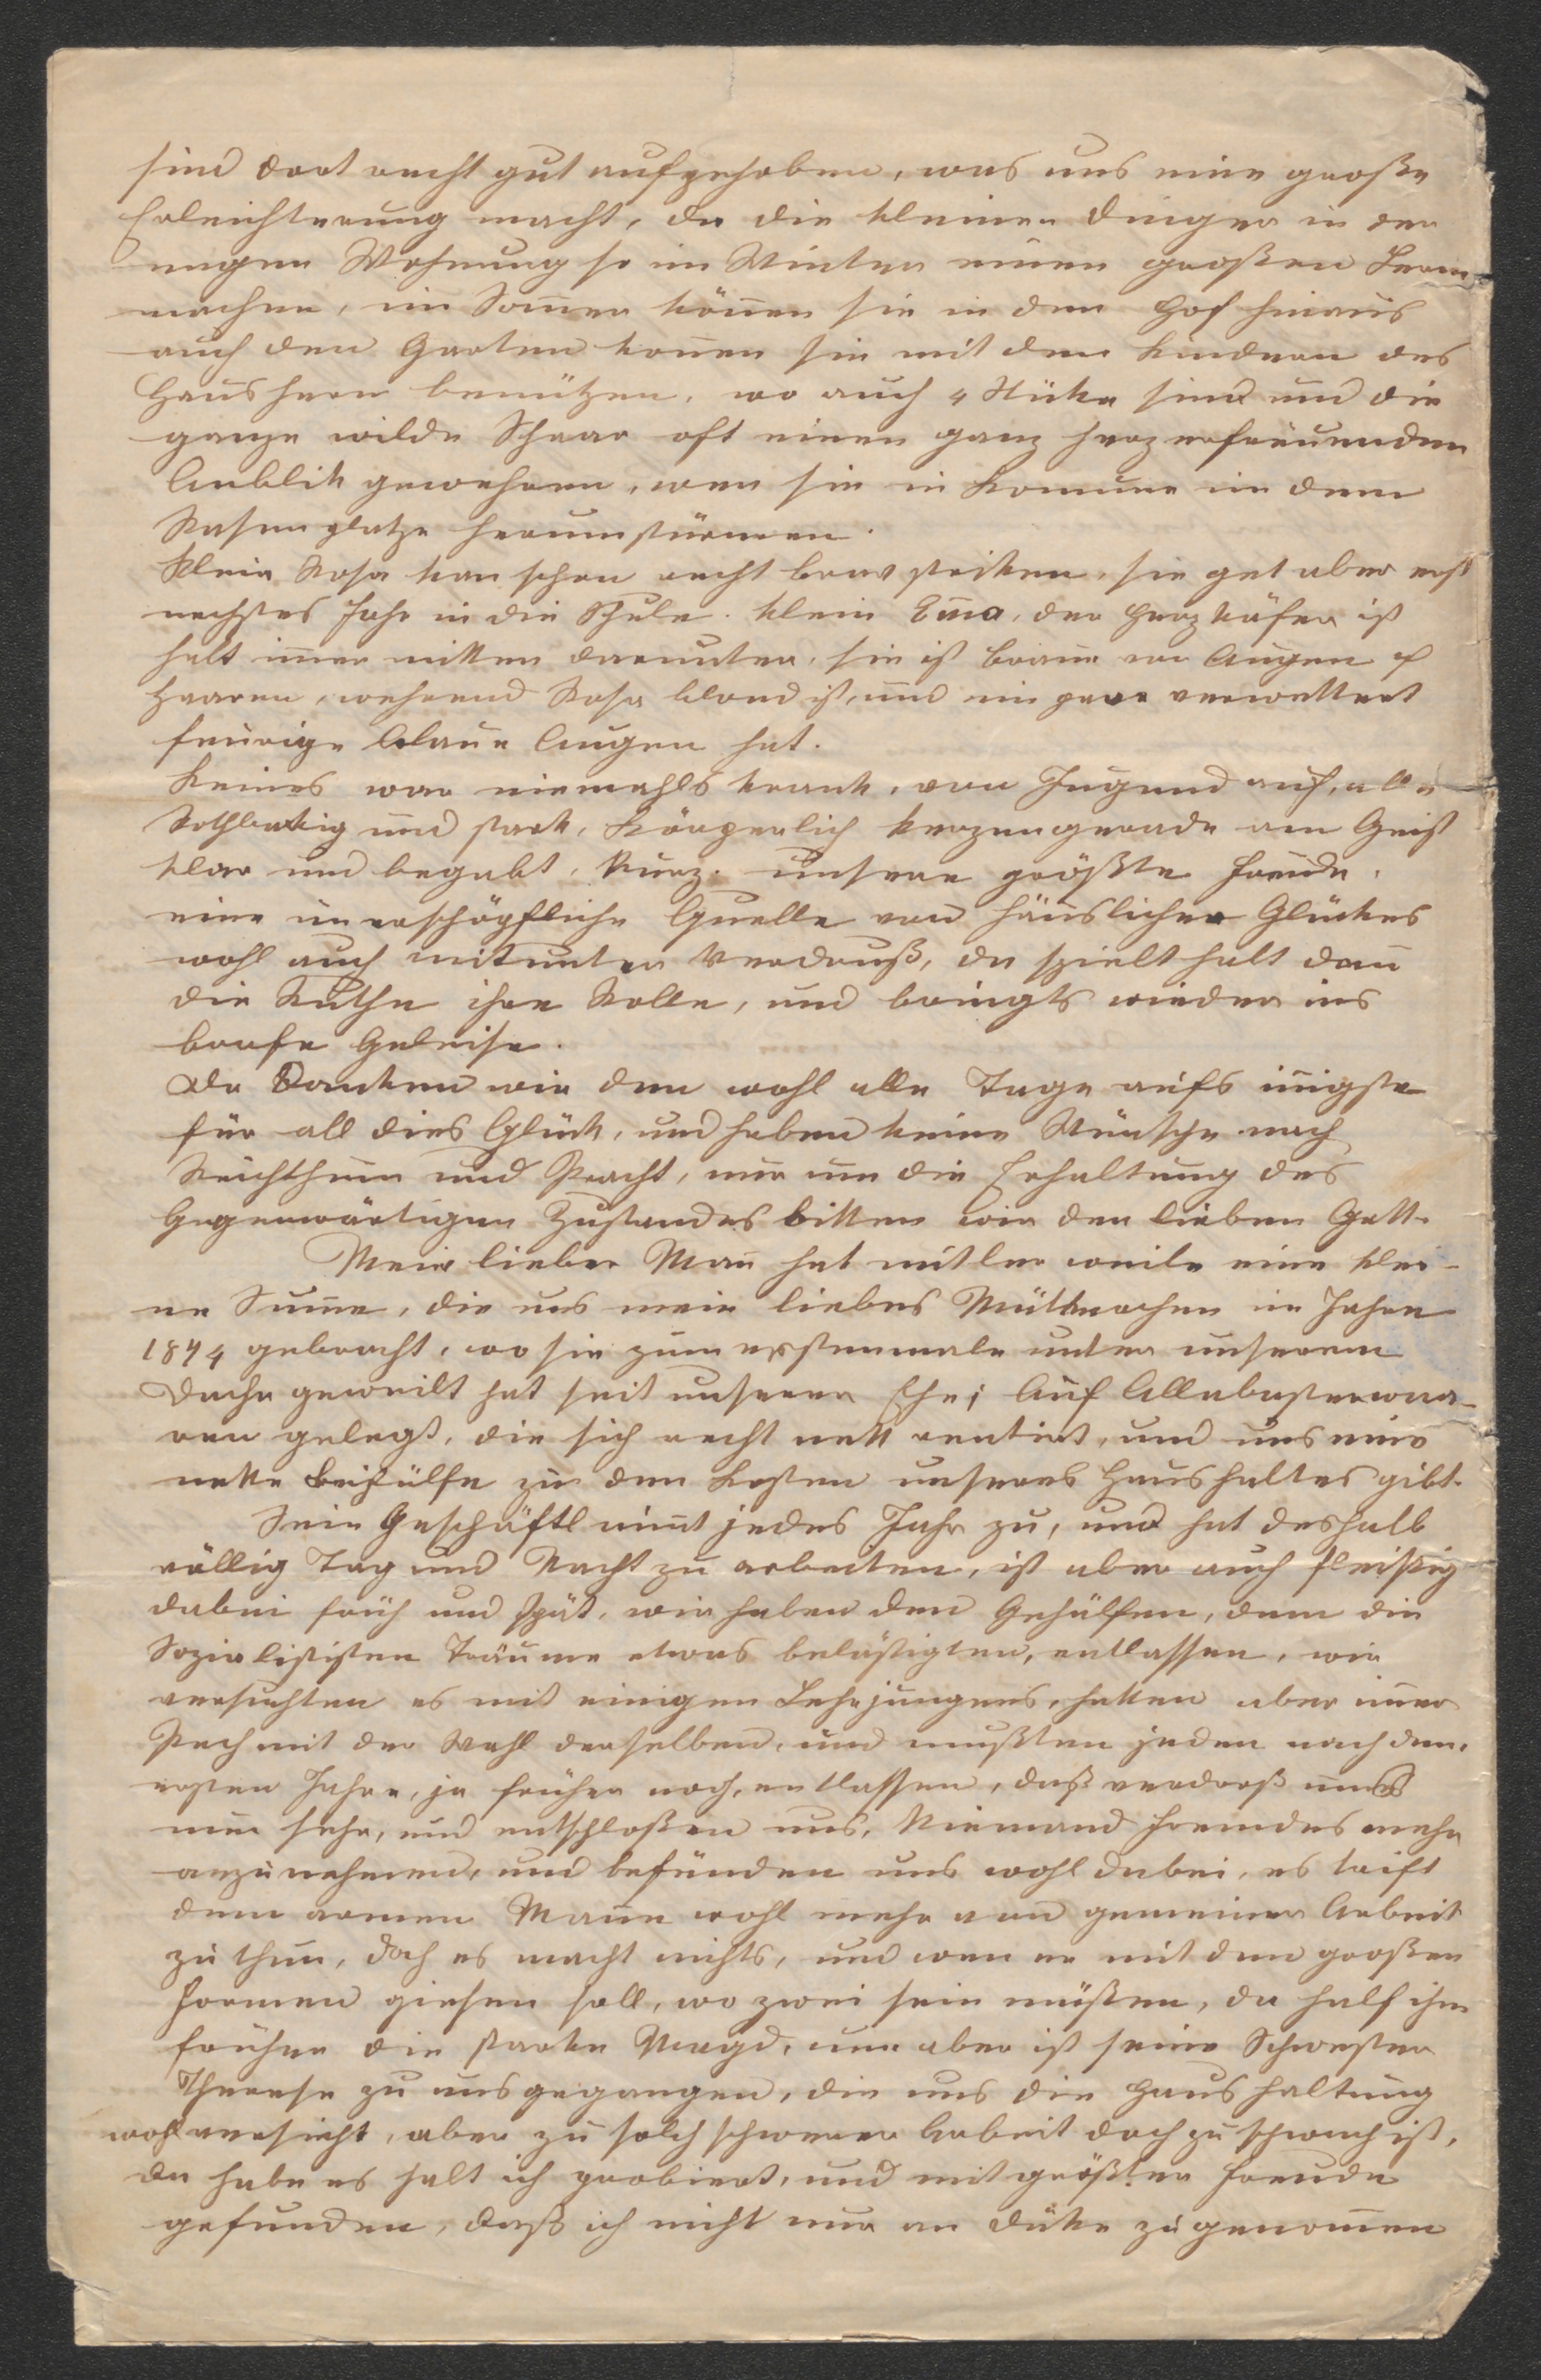 sind dort recht gut aufgehoben, was uns eine große
Erleichterung macht, da die kleinen Dinger in der
engen Wohnung so im Winter einen großen Lerm
machen, im Som̅er kön̅en sie in den Hof hinaus
auch den Garten kön̅en sie mit den Kindern des
Hausherrn benützen, wo auch 4 Stüke sind und die
ganze wilde Schaar oft einen ganz herzerfreuenden
Anblik gewehren, wen sie in Komune in dem
Rasenplatze herumstürmen.
Klein Rosa kan schon recht brav striken, sie get aber erst
nechstes Jahr in die Schule. Klein Em̅a, der Herzkäfer ist
halt im̅er mitten darunter, sie ist braun von Augen &
Haaren, wehrend Rosa blond ist, und ein paar verwettert
feurige blaue Augen hat.
Keines war niemahls krank, von Jugend auf, alle
Rothbakig und stark, Körperlich kerzengerade am Geist
klar und begabt, kurz. unsere größte Freude,
eine unerschöpfliche Quelle von häuslicher Glückes
wohl auch mitunter Verdruß, da spielt halt dan̅
die Ruthe ihre Rolle, und bringts wieder ins
brafe Geleise.
Da Danken wir den wohl alle Tage aufs in̅igste
für all dies Glück, und haben keine Wünsche nach
Reichthum und Pracht, nur um die Erhaltung des
Gegenwärtigen Zustandes bitten wir den lieben Gott.
Mein lieber Man̅ hat mitler weile eine klei-
ne Sum̅e, die uns mein liebes Mütterchen im Jahre
1874 gebracht, wo sie zum erstenmale unter unserem
Dache geweilt hat seit unserer Ehe; Auf Allabasterwaa-
ren gelegt, die sich recht nett rentirt, und uns eine
nette Beihülfe zu den Kosten unseres Haushaltes gibt.
Sein Geschäftl nim̅t jedes Jahr zu, und hat deshalb
völlig Tag und Nacht zu arbeiten, ist aber auch fleißig
dabei früh und spät, wir haben den Gehülfen, dem die
Sozialististen Träume etwas belästigten, entlassen, wir
versuchten es mit einigen Lehrjungens, hatten aber im̅er
Pech mit der Wahl derselben, und mußten jeden nach dem
ersten Jahre, ja früher noch, entlassen, daß verdroß uns
nun sehr, und entschloßen uns, Niemand Fremdes mehr
anzunehmen, und befünden uns wohl dabei, es trift
dem armen Man̅e wohl mehr von gemeiner Arbeit
zu thun, doch es macht nichts, und wen er mit den großen
Formen giesen soll, wo zwei sein müßen, da half ihm
früher die starke Magd, nun aber ist seine Schwester
Therese zu uns gegangen, die uns die Haushaltung
wohl versieht, aber zu solch schwerer Arbeit doch zu schwach ist,
da habe es halt ich probiert, und mit größter Freude
gefunden, daß ich nicht nur an Düke zugenom̅en